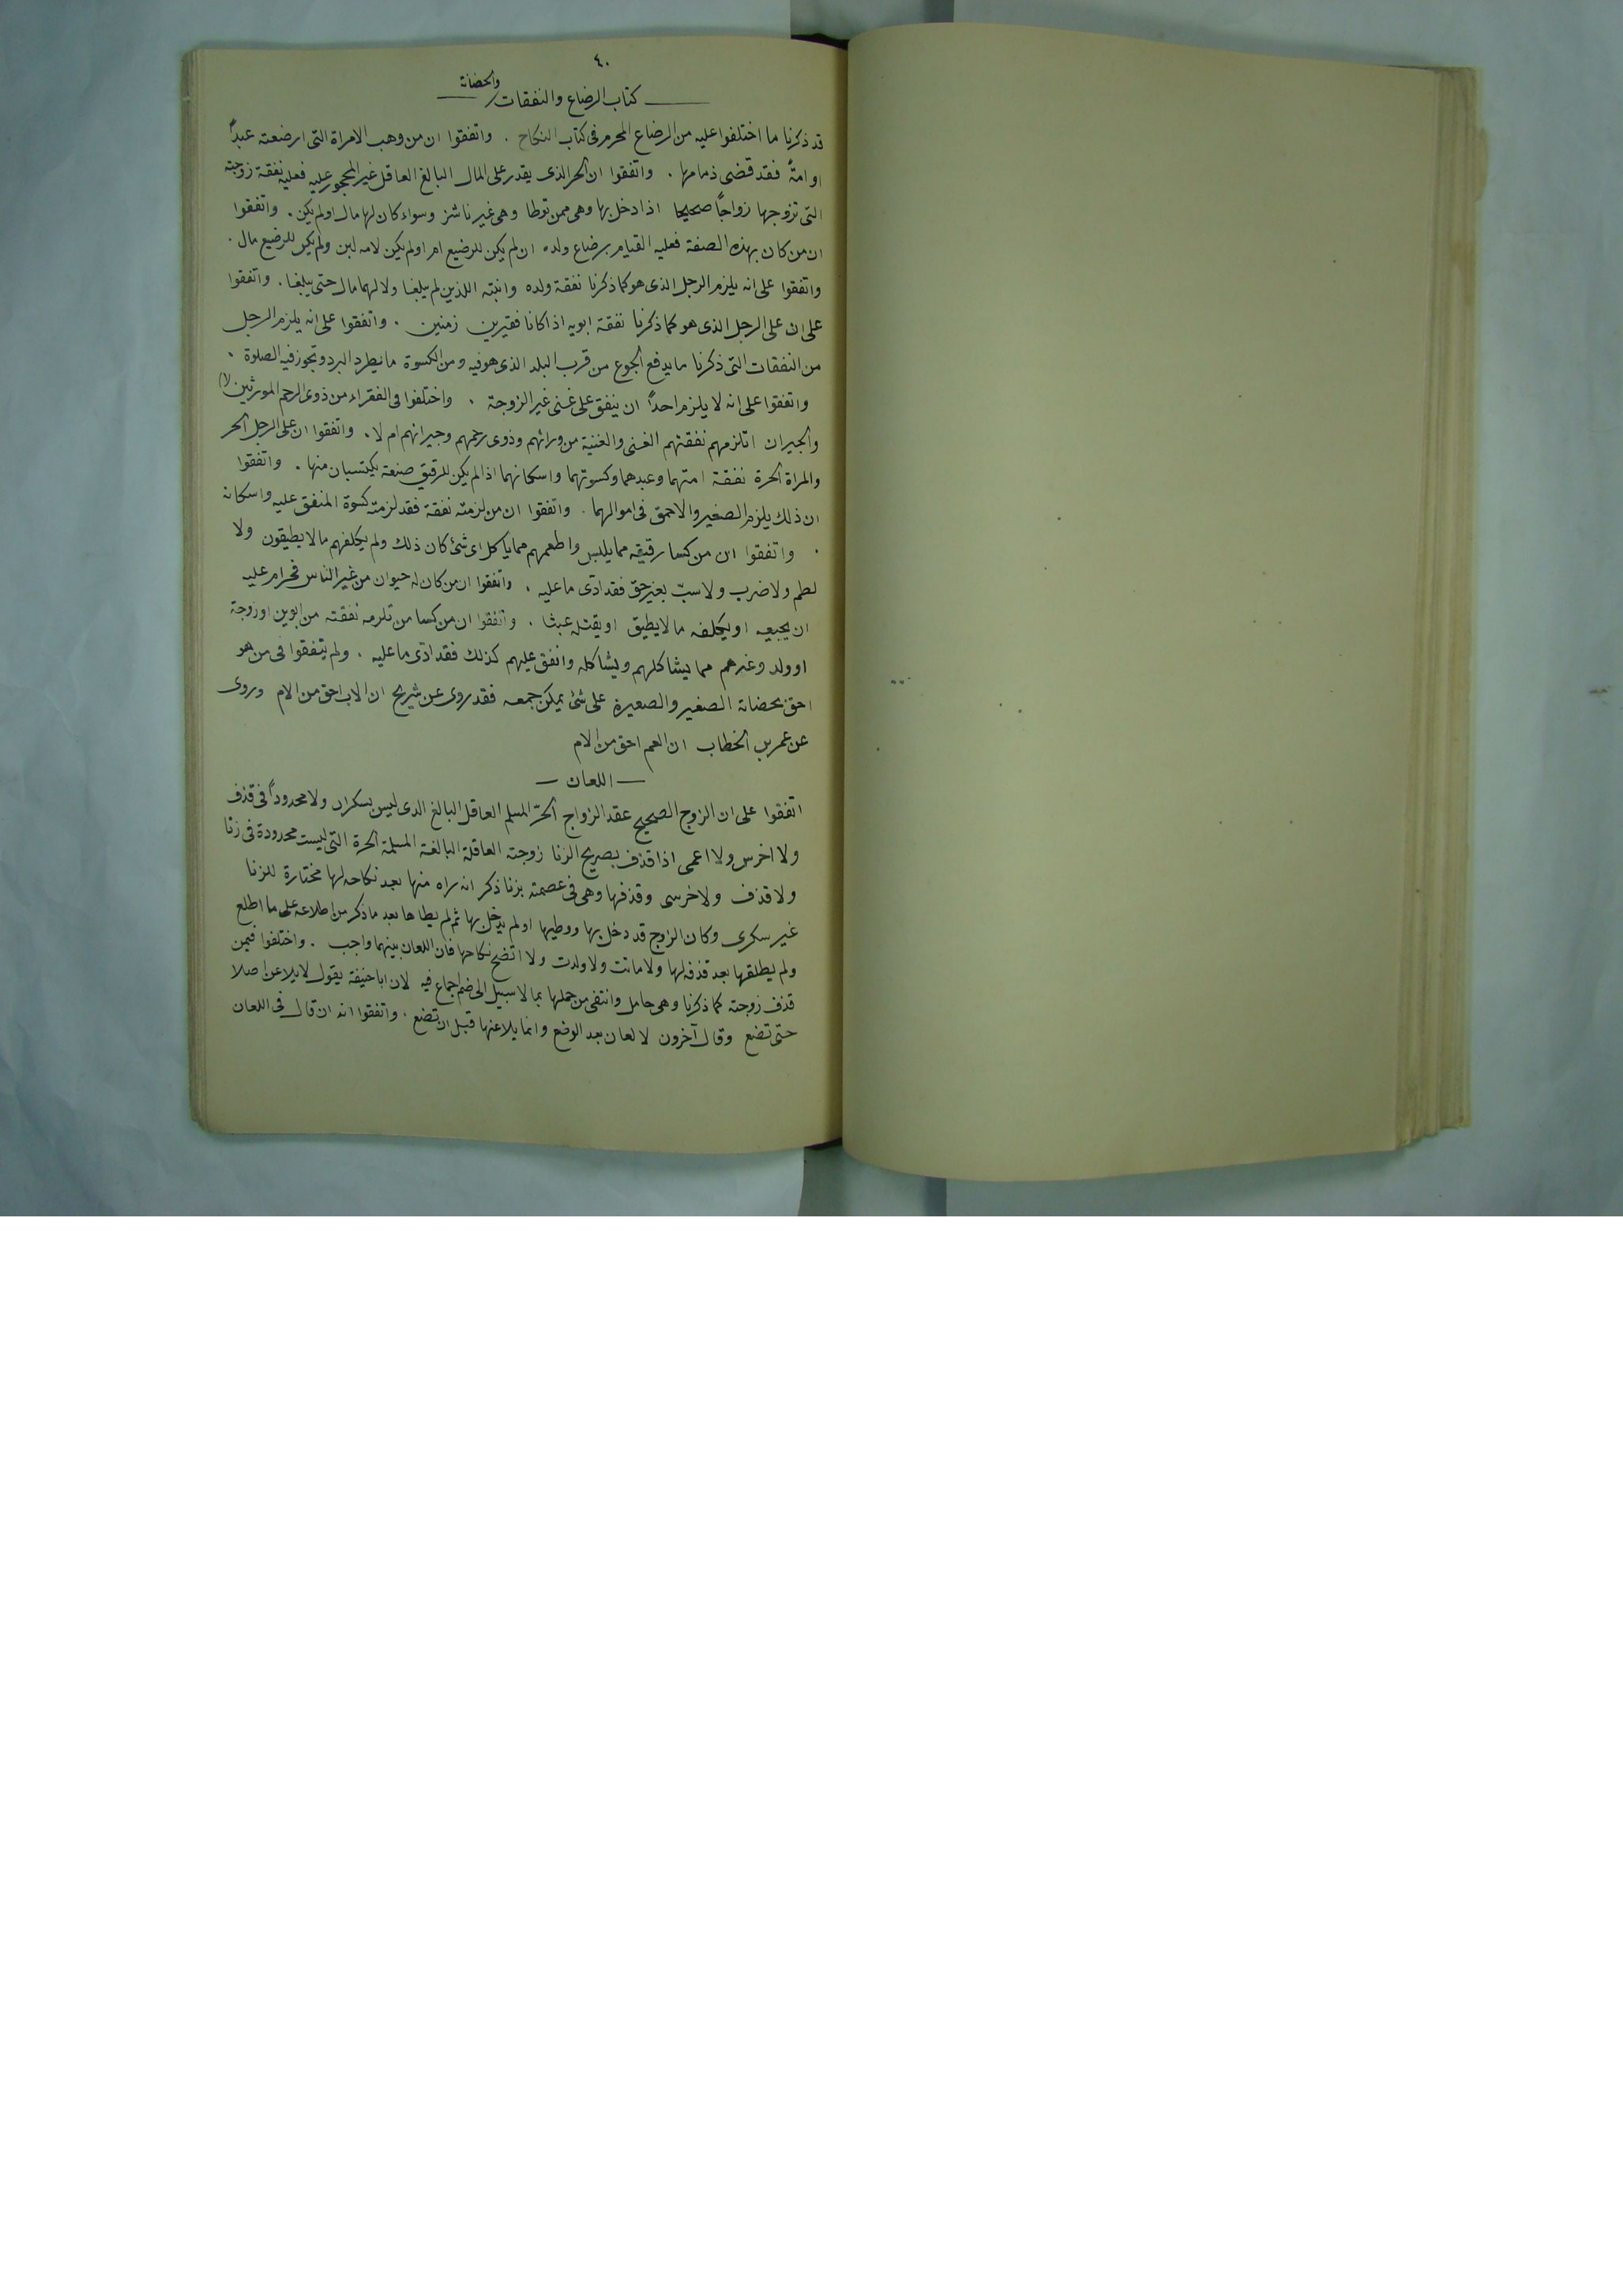 ٤٠
كتاب الرضاع والنفقات والحضانة
قد ذكرنا ما اختلفوا عليه من الرضاع المحرم فى كتاب النكاح . واتفقوا ان من وهب الامراة التى ارضعته عبداً
او امةً فقد قضى ذمامها . واتفقوا ان الحر الذى يقدر على المال البالغ العاقل غير المحجور عليه فعليه نفقة زوجته
التى تزوجها زواجاً صحيحا اذا دخل بها وهى ممن توطا وهى غير ناشز وسواء كان لها مال او لم يكن . واتفقوا
ان من كان بهذه الصفة فعليه القيام برضاع ولده ان لم يكن للرضيع ام او لم يكن لامه لبن ولم يكن للرضيع مال .
واتفقوا على انه يلزم الرجل الذى هو كما ذكرنا نفقة ولده وابنته اللذين لم يبلغا ولا لهما مال حتى يبلغا . واتفقوا
على ان على الرجل الذى هو كما ذكرنا نفقة ابويه اذا كانا فقيرين زمنين . واتفقوا على انه يلزم الرجل
من النفقات التى ذكرنا ما يدفع الجوع من قرب البلد الذى هو فيه ومن الكسوة ما يطرد البرد وتجوز فيه الصلوة .
واتفقوا على انه لا يلزم احداً ان ينفق على غنى غير الزوجة . واختلفوا فى الفقراء من ذوى الرحم الموروثين (١)
والجيران اتلزمهم نفقتهم الغنى والغنية من ورائهم وذوى رحمهم وجيرانهم ام لا . واتفقوا ان على الرجل الحر
والمراة الحرة نفقة امتهما وعبدهما وكسوتهما واسكانهما اذا لم يكن للرقيق صنعة يكتسبان منها . واتفقوا
ان ذلك يلزم الصغير والاحمق فى اموالهما . واتفقوا ان من لزمته نفقة فقد لزمته كسوة المنفق عليه واسكانه
. واتفقوا ان من كسا رقيقه مما يلبس واطعمهم مما ياكل اى شئ كان ذلك ولم يكلفهم ما لا يطيقون ولا
لطم ولا ضرب ولا سبّ بغير حق فقد ادّى ما عليه . واتفقوا ان من كان له حيوان من غير الناس فحرام عليه
ان يجيعه او يكلفه ما لا يطيق او يقتله عبثا . واتفقوا ان من كسا من تلزمه نفقته من ابوين او زوجة
او ولد وغيرهم مما يشاكلهم ويشاكله وانفق عليهم كذلك فقد ادّى ما عليه . ولم يتفقوا فى من هو
احق بحضانة الصغير والصغيرة على شئ يمكن جمعه فقد روى عن شريح ان الاب احق من الام وروى
عن عمر بن الخطاب ان العم احق من الام
— اللعان —
اتفقوا على ان الزوج الصحيح عقد الزواج الحرّ المسلم العاقل البالغ الذى ليس بسكران ولا محدوداً فى قذف
ولا اخرس ولا اعمى اذا قذف بصريح الزنا زوجته العاقلة البالغة المسلمة الحرة التى ليست محدودة فى زنا
ولا قذف ولا خرسى وقذفها وهى فى عصمته بزنا ذكر انه راه منها بعد نكاحه لها مختارة للزنا
غير سكرى وكان الزوج قد دخل بها ووطيها او لم يدخل بها ثم لم يطاها بعد ما ذكر من اطلاعه على ما اطلع
ولم يطلقها بعد قذفه لها ولا ماتت ولا ولدت ولا اتضح نكاحها فان اللعان بينهما واجب . واختلفوا فيمن
قذف زوجته كما ذكرنا وهى حامل وانتفى من حملها بما لا سبيل الى ضم اجماع فيه لان ابا حنيفة يقول لا يلاعن اصلا
حتى تضع وقال آخرون لا لعان بعد الوضع وانما يلاعنها قبل ان تضع . واتفقوا انه ان قال فى اللعان